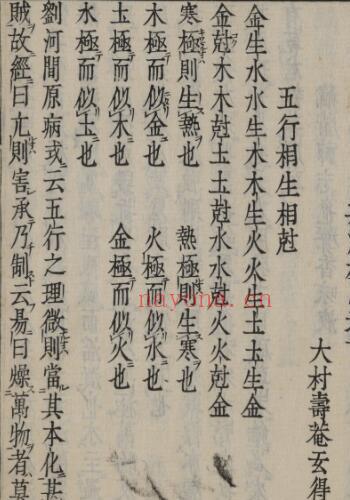 大村壽菴玄得
五行相生相尅
金生水水生木木生火火生土土生金
金尅木木尅土土尅水水尅火火尅金
寒極則生熱也 熱極則生寒也
木極而似金也 火極而似水也
土極而似木也 金極而似火也
水極而似土也
劉河間原病式云五行之理微則當其本化甚
賊故經曰亢則害承乃制云易曰燥萬物者莫
nayona.cn